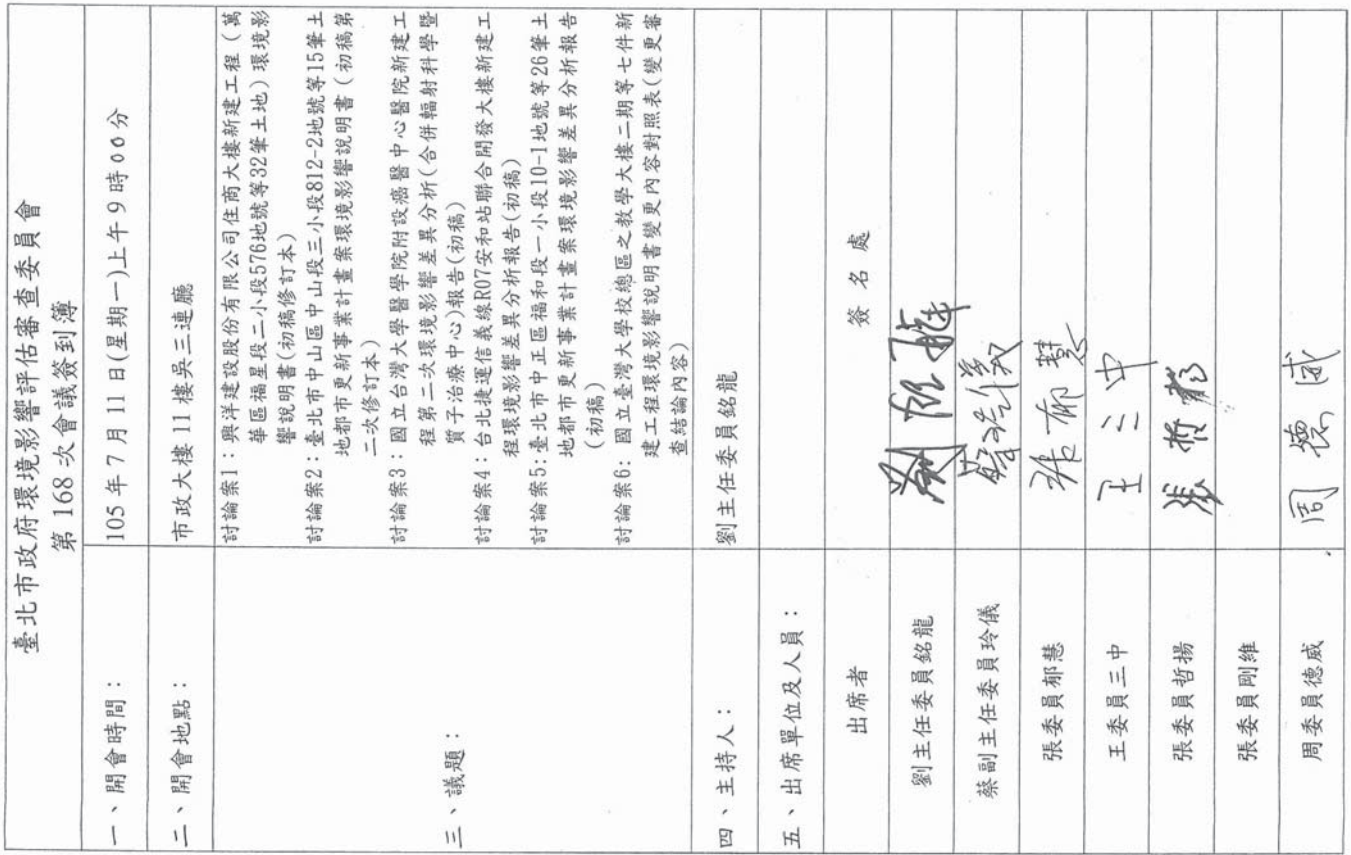 臺北市政府環境影響評估審查委員會
第 168 次會議簽到簿
一、開會時間：
105 年 7 月 11 日(星期一)上午 9 時 00 分
二、開會地點：
市政大樓 11 樓吳三連廳
三、議題：
討論案1：興洋建設股份有限公司住商大樓新建工程（萬
華區福星段二小段576地號等32筆土地）環境影
響說明書(初稿修訂本)
討論案2：臺北市中山區中山段三小段812-2地號等15筆土
地都市更新事業計畫案環境影響說明書（初稿第
二次修訂本）
討論案3：國立台灣大學醫學院附設癌醫中心醫院新建工
程第二次環境影響差異分析(合併輻射科學暨
質子治療中心)報告(初稿)
討論案4：台北捷運信義線R07安和站聯合開發大樓新建工
程環境影響差異分析報告(初稿)
討論案5：臺北市中正區福和段一小段10-1地號等26筆土
地都市更新事業計畫案環境影響差異分析報告
（初稿）
討論案6：國立臺灣大學校總區之教學大樓二期等七件新
建工程環境影響說明書變更內容對照表(變更審
查結論內容)
四、主持人：
劉主任委員銘龍
五、出席單位及人員：
出席者
簽 名 處
劉主任委員銘龍
劉銘龍
蔡副主任委員玲儀
蔡玲儀
張委員郁慧
張郁慧
王委員三中
王三中
張委員哲揚
張哲揚
張委員剛維
周委員德威
周德威